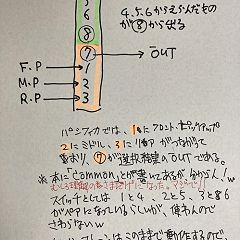 5
6
⑧
4.5.6からえらんだもの
が⑧から出る
⑦ → OUT
F.P → 1
M.P → 2
R.P → 3
パシフィカでは、1にフロントピックアップ
2にミドル、3にリアがつながって
おり、⑦が選択結果のOUTである。
※本に「common」とか書いてあるが、わからん！w
スイッチとしては 1と4、2と5、3と6
がペアになっているらしいが、使わんので
さわらないw
このままで動作するので、